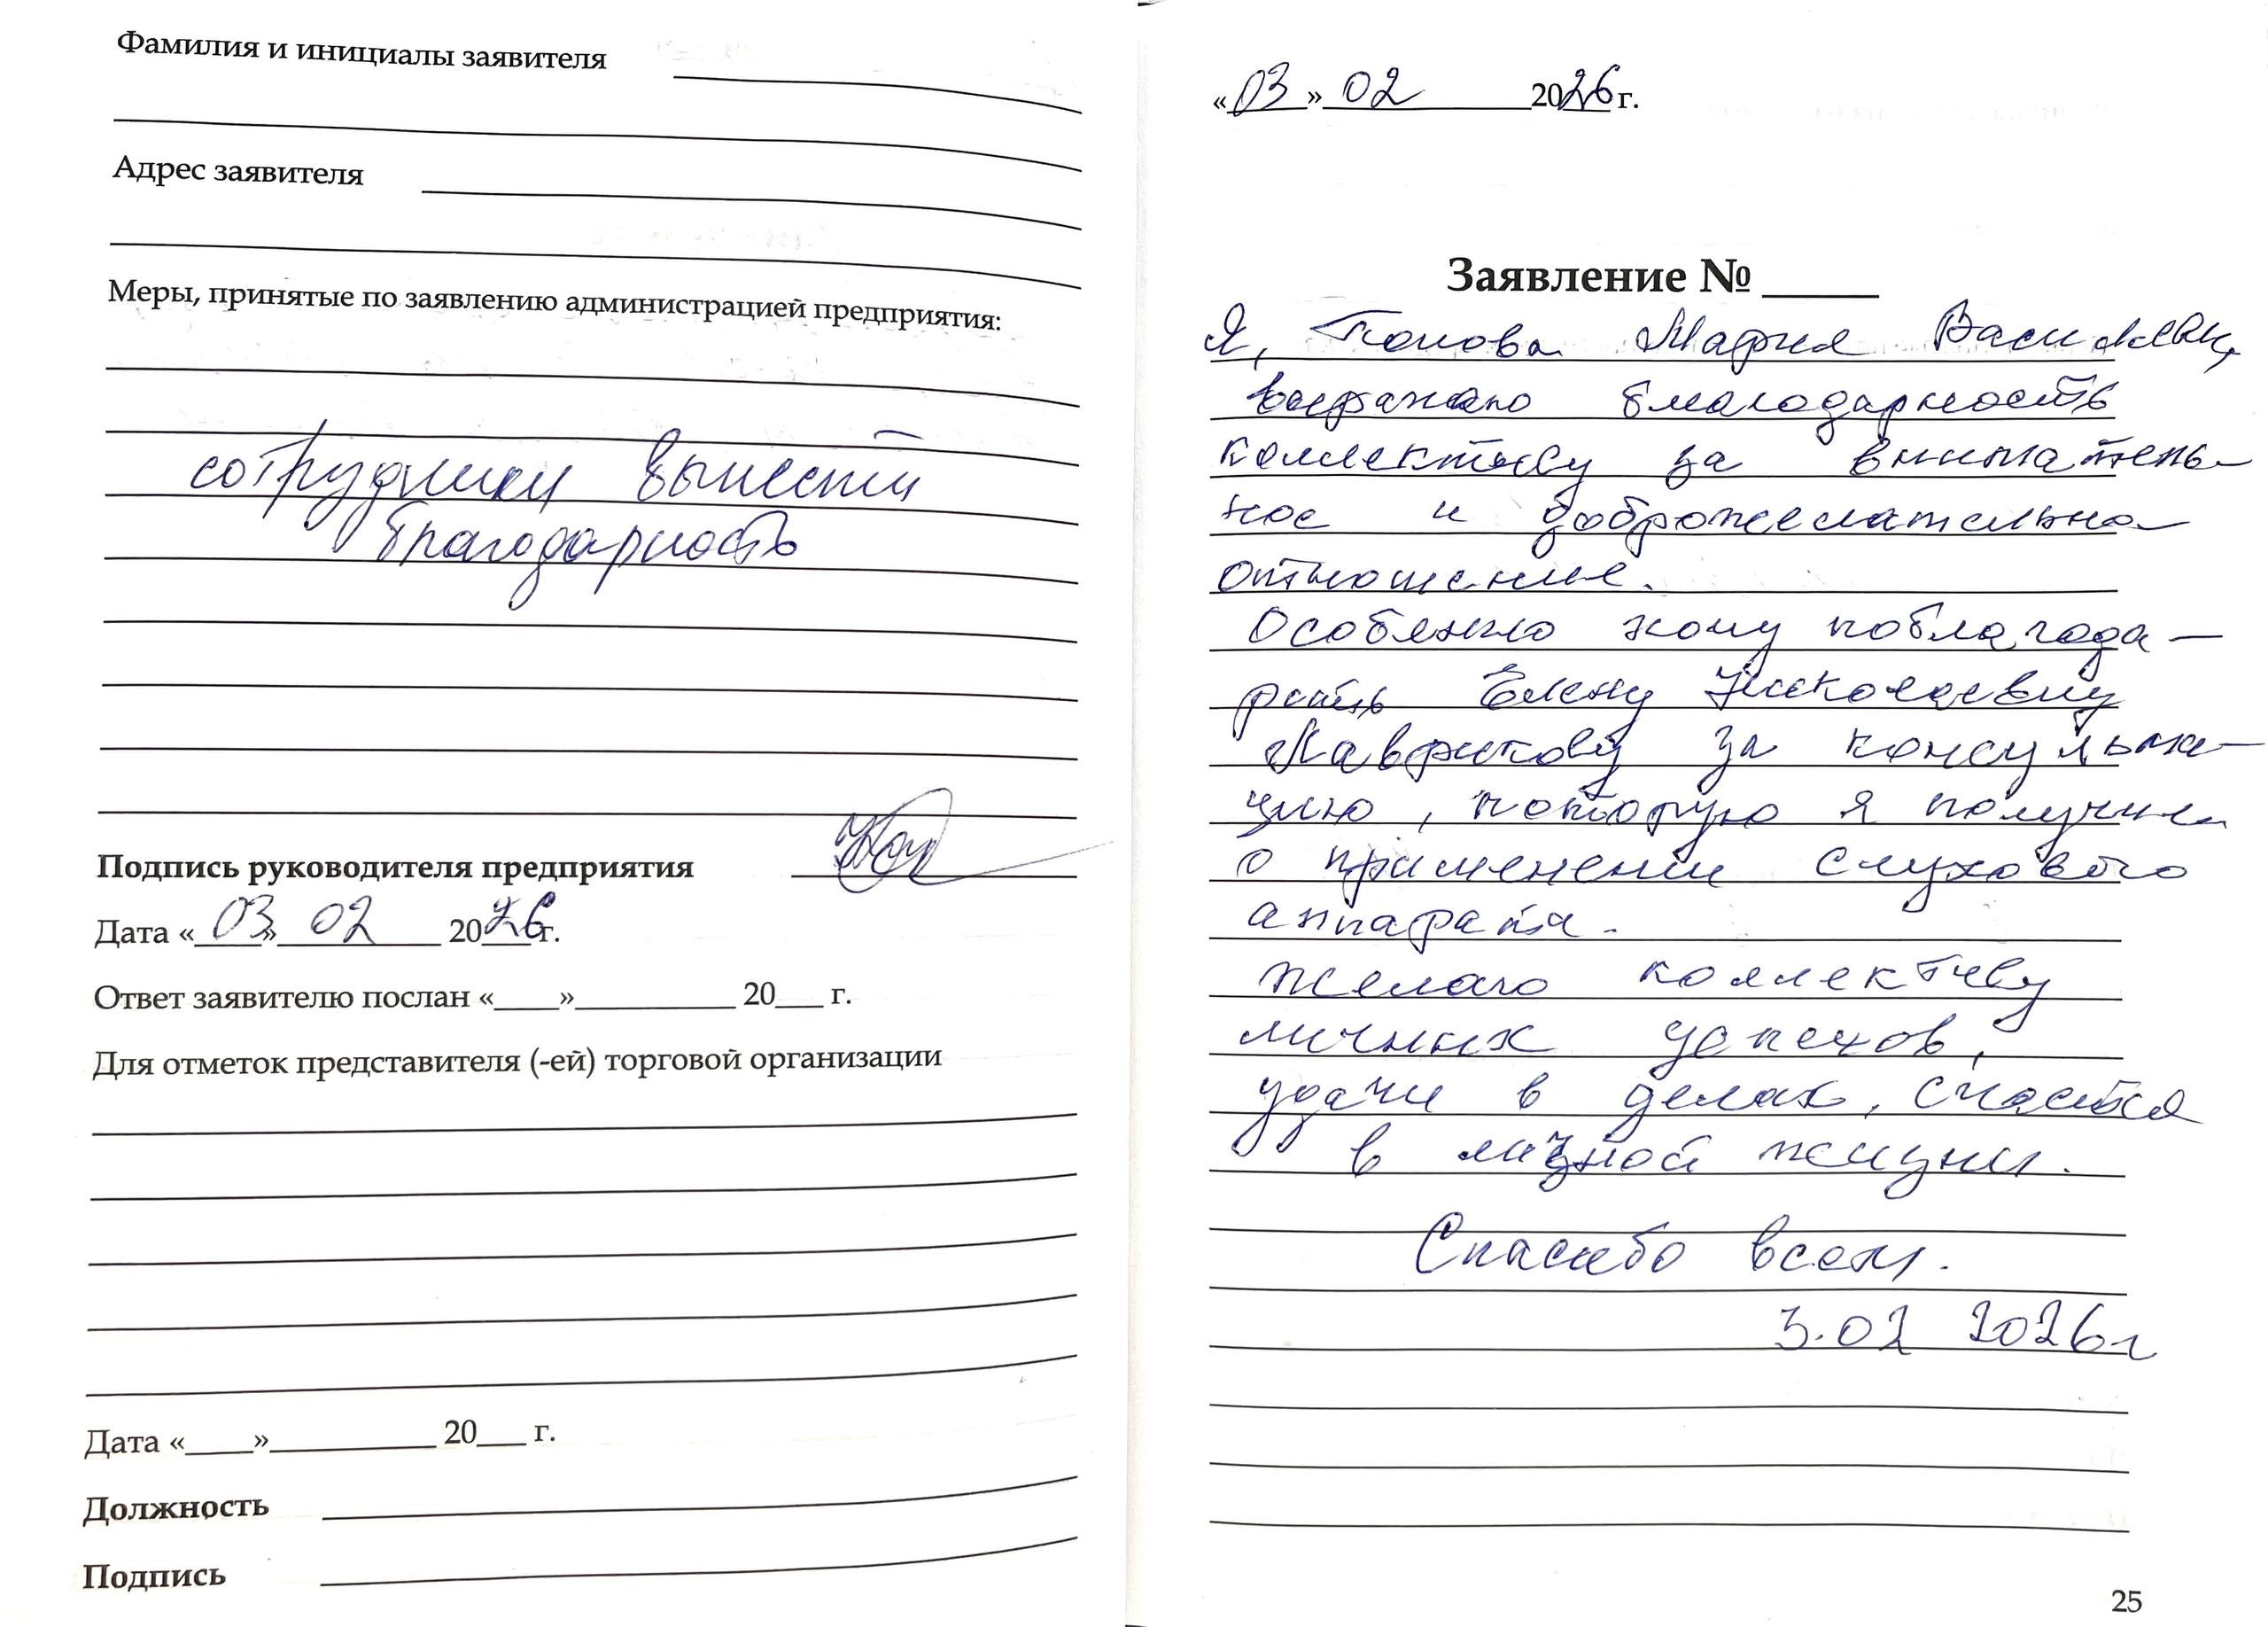 Фамилия и инициалы заявителя
Адрес заявителя
Меры, принятые по заявлению администрацией предприятия:
сотруднику вынести
благодарность
Подпись руководителя предприятия
Дата «03» 02 2026г.
Ответ заявителю послан «____»__________ 20___ г.
Для отметок представителя (-ей) торговой организации
Дата «____»__________ 20___ г.
Должность
Подпись
«03» 02 2026 г.
Заявление № _____
Я, Попова Мария
выражаю благодарность
коллективу за вниматель-
ное и доброжелательно
отношение.
Особенно хочу поблагода-
рить Елену Николаевну
Лаврикову за консульта-
цию, которую я получила
о применении слухового
аппарата.
Желаю коллективу
личных успехов,
удачи в делах, счастья
в личной жизни.
Спасибо всем.
3.02 2026г
25